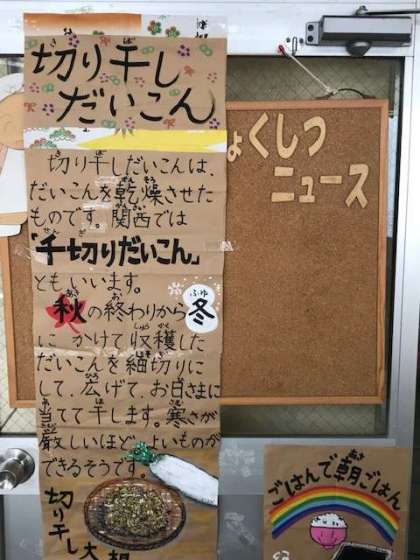 切り干し
だいこん
切り干しだいこんは、
だいこんを乾燥させた
ものです。関西では
「千切りだいこん」
ともいいます。
秋の終わりから冬
にかけて収穫した
だいこんを細切りに
して、広げて、お日さまに
当てて干します。寒さが
厳しいほど、よいものが
できるそうです。
切り干し大根
ょくしつ
ニュース
ごはんで朝ごはん